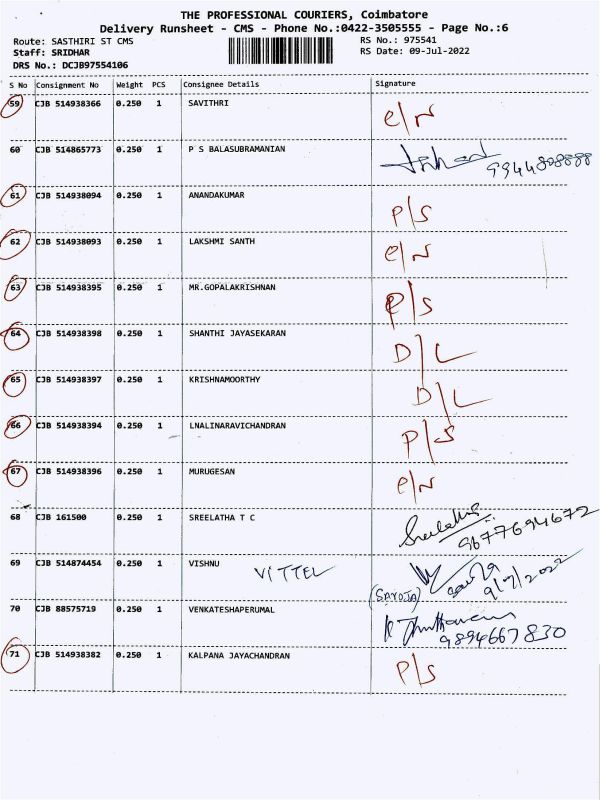 THE PROFESSIONAL COURIERS, Coimbatore
Delivery Runsheet - CMS - Phone No.:0422-3505555 - Page No.:6
Route: SASTHIRI ST CMS RS No.: 975541
Staff: SRIDHAR RS Date: 09-Jul-2022
DRS No.: DCJB97554106
S No Consignment No Weight PCS Consignee Details Signature
59 CJB 514938366 0.250 1 SAVITHRI e/N
60 CJB 514865773 0.250 1 P S BALASUBRAMANIAN 9944808888
61 CJB 514938094 0.250 1 ANANDAKUMAR P/S
62 CJB 514938093 0.250 1 LAKSHMI SANTH e/N
63 CJB 514938395 0.250 1 MR.GOPALAKRISHNAN P/S
64 CJB 514938398 0.250 1 SHANTHI JAYASEKARAN D/L
65 CJB 514938397 0.250 1 KRISHNAMOORTHY D/L
66 CJB 514938394 0.250 1 LNALINARAVICHANDRAN P/S
67 CJB 514938396 0.250 1 MURUGESAN e/N
68 CJB 161500 0.250 1 SREELATHA T C Sreelatha 9677694672
69 CJB 514874454 0.250 1 VISHNU VITTEL (SAROJA) 9/7/2022
70 CJB 88575719 0.250 1 VENKATESHAPERUMAL 9894667830
71 CJB 514938382 0.250 1 KALPANA JAYACHANDRAN P/S